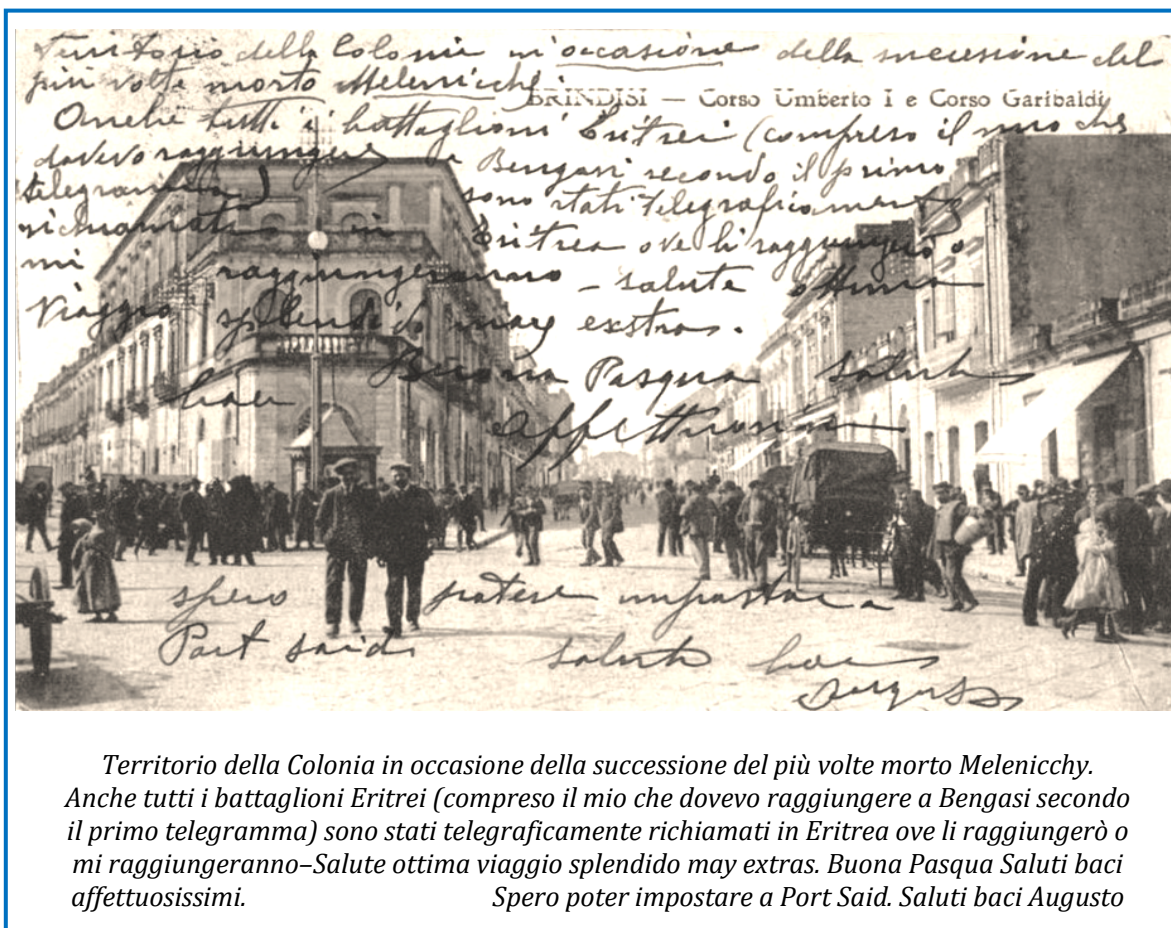 Territorio della Colonia in occasione della successione del
più volte morto Melenicchy.
BRINDISI — Corso Umberto I e Corso Garibaldi
Anche tutti i battaglioni Eritrei (compreso il mio che
dovevo raggiungere a Bengasi secondo il primo
telegramma) sono stati telegraficamente
richiamati in Eritrea ove li raggiungerò o
mi raggiungeranno – salute ottima
Viaggio splendido may exstras.
Buona Pasqua saluti
baci affettuosissimi
spero potere impostare a
Port Said. saluti baci
Augusto
Territorio della Colonia in occasione della successione del più volte morto Melenicchy.
Anche tutti i battaglioni Eritrei (compreso il mio che dovevo raggiungere a Bengasi secondo
il primo telegramma) sono stati telegraficamente richiamati in Eritrea ove li raggiungerò o
mi raggiungeranno–Salute ottima viaggio splendido may extras. Buona Pasqua Saluti baci
affettuosissimi. Spero poter impostare a Port Said. Saluti baci Augusto